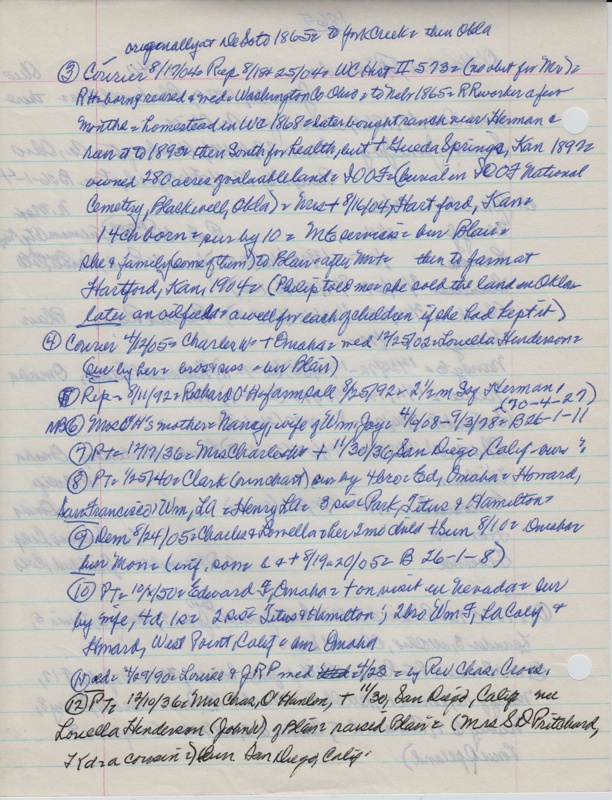 originally at DeSoto 1865 = to York Creek = then Okla
③ Courier 8/17/04 = Rep 8/18 & 25/04 = WC Hist II 573 = (no obit for Mr) =
RH = born, reared & med = Washington Co Ohio = to Nebr 1865 = RR worker a few
months = homestead in WC 1868 = later bought ranch near Herman &
ran it to 1893 = then South for health, but + Gueda Springs, Kan 1897 =
owned 280 acres valuable land = IOOF = (burial in IOOF National
Cemetery, Blackwell, Okla) = Mrs + 8/16/04, Hartford, Kan =
14 ch born = sur by 10 = ME services = bur Blair =
she & family (some of them) to Blair = after Mr + then to farm at
Hartford, Kan, 1904 = (Philip told me she sold the land in Okla =
later an oilfield = a well for each of children if she had kept it)
④ Courier 4/12/05 = Charles W + Omaha = med 12/25/02 = Louella Henderson =
(sur by her = bros & sis = bur Blair)
⑤ Rep = 8/11/92 = Richard O'H farm sale 8/25/92 = 2 1/2 m So of Herman,
(20-4-27)
NB ⑥ Mrs O'H's mother = Nancy, wife of Wm Jay = 4/9/08 - 9/3/78 = B26-1-11
⑦ PT = 12/17/36 = Mrs Charles + 11/30/36, San Diego, Calif
⑧ PT = 1/25/40 = Clark sur by 4 bro = Ed, Omaha = Howard,
San Francisco; Wm, LA = Henry LA = 3 sis = Park, Titus & Hamilton =
⑨ Dem 8/24/05 = Charles & Louella = her 2 mo old child + Sun = Omaha =
bur Mon = (inf. son = b & + 8/19 = 20/05 = B 26-1-8)
⑩ PT = 50 = Edward F, Omaha = + on visit in Nevada = sur
by wife, 4d, 1s = 2 sis = Titus & Hamilton; 2 bro Wm F, La Calif &
Howard, West Point, Calif = bur Omaha
⑪ ad = 4/29/90 = Louise & JRP med 4/23 = by Rev Chas. Cross,
⑫ PT = 12/10/36 = Mrs Chas, O'Hanlon, + 11/30, San Diego, Calif = nee
Louella Henderson (John's) of Blair = raised Blair = (Mrs S D Pritchard,
a cousin =) bur San Diego, Calif